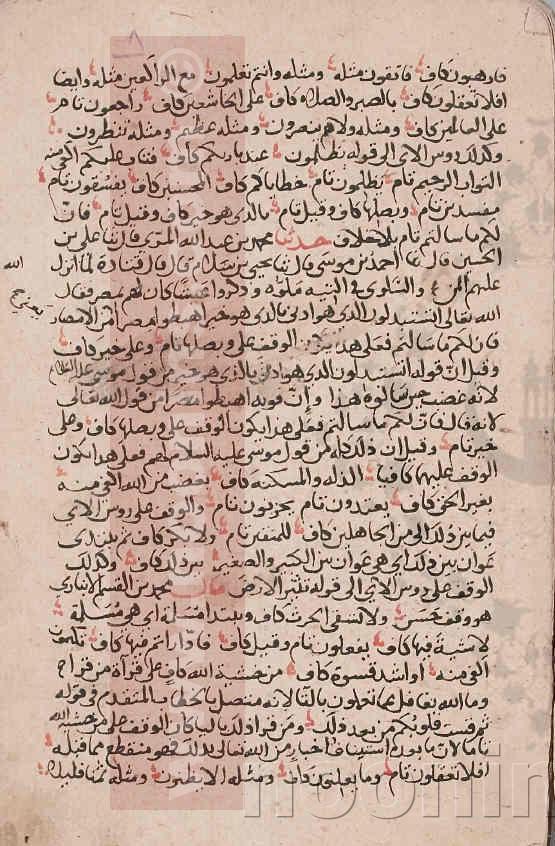 فارهبون كاف فاتقون مثله ومثله وانتم تعلمون مع الراكعين مثله وايضا
افلا تعقلون كاف بالصبر والصلاة كاف على الخاشعين كاف راجعون تام
على العالمين كاف ومثله ولاهم ينصرون ومثله عظيم ومثله تنظرون
وكذلك روس الاي الى قوله يظلمون عند باريكم كاف فتاب عليكم اكفى منه
التواب الرحيم تام يظلمون تام خطاياكم كاف المحسنين كاف يفسقون تام
مفسدين تام وبصلها كاف وقيل تام بالذي هو خير كاف وقيل تام فان
لكم ما سالتم تام بلا خلاف حدثنا محمد بن عبدالله المري قال نا علي بن
الحسين قال نا احمد بن موسى قال نا يحيى بن سلام قال قال قتادة لما انزل الله
عليهم المن والسلوى في التيه ملوه وذكروا عيشا كان لهم بمصر فقال
الله تعالى اتستبدلون الذي هو ادنى بالذي هو خير اهبطوا مصرا من الامصار
فان لكم ما سالتم فعلى هذا يكون الوقف على وبصلها تام وعلى خير كاف
وقيل ان قوله اتستبدلون الذي هو ادنى بالذي هو خير من قول موسى عليه السلام
لانه غضب حين سالوه هذا وان قوله اهبطوا مصرا من قول الله تعالى
كانه قال فان لكم ما سالتم فعلى هذا يكون الوقف على وبصلها كاف وعلى
خير تام وقيل ان ذلك كله من قول موسى عليه السلام لهم فعلى هذا يكون
الوقف عليهما كافيا الذلة والمسكنة كاف بغضب من الله اكفى منه
بغير الحق كاف يعتدون تام يحزنون تام والوقف على روس الاي
فيما بين ذلك الى من الجاهلين كاف للمتقين تام ولا بكر كاف ثم يبتدى
عوان بين ذلك اي هو عوان بين الكبير والصغير بين ذلك كاف وكذلك
الوقف على روس الاي الى قوله تثير الارض قال محمد بن القسم الانباري
هو وقف حسن ولا تسقي الحرث كاف ويبتدا مسلمة اي هو مسلمة
لا شية فيها كاف يفعلون تام وقيل كاف فادارأتم فيها كاف تكتمون
اكفى منه او اشد قسوة كاف من خشية الله كاف على قراة من قرا
وما الله بغافل عما تعملون بالتا لانه متصل بالخطاب المتقدم في قوله
ثم قست قلوبكم من بعد ذلك ومن قرا ذلك باليا كان الوقف على من خشية الله
تاما لان ما بعده استيناف اخبار من الله تعالى بذلك فهو منقطع مما قبله
افلا تعقلون تام وما يعلنون كاف ومثله الا يظنون ومثله ثمنا قليلا
noorlin